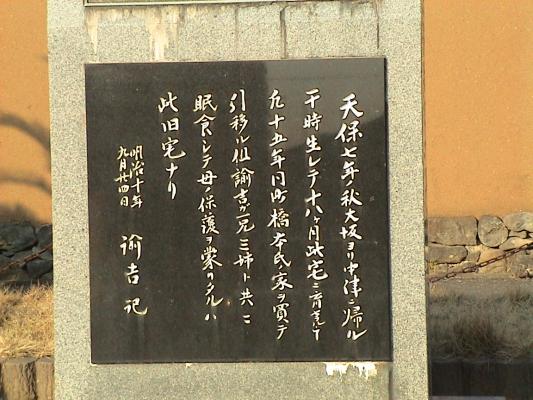 天保七年ノ秋大坂ヨリ中津ニ帰ル
于時生レテ十八ヶ月此宅ニ育
凡十五年同町橋本氏ノ家ヲ買テ
引移ル但諭吉ガ一兄三姉ト共ニ
眠食シテ母ノ保護ヲ蒙リタルハ
此旧宅ナリ
明治十年
九月廿四日
諭吉記